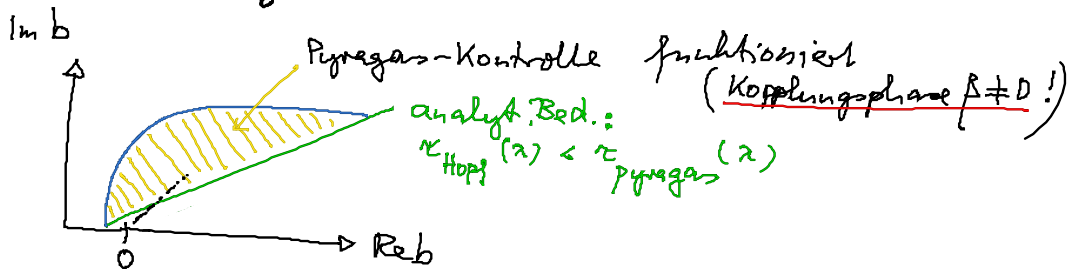 Im b
Pyragas-Kontrolle funktioniert
(Kopplungsphase β ≠ 0 !)
analyt. Bed.:
τ_Hopf (λ) < τ_pyragas (λ)
0
Re b